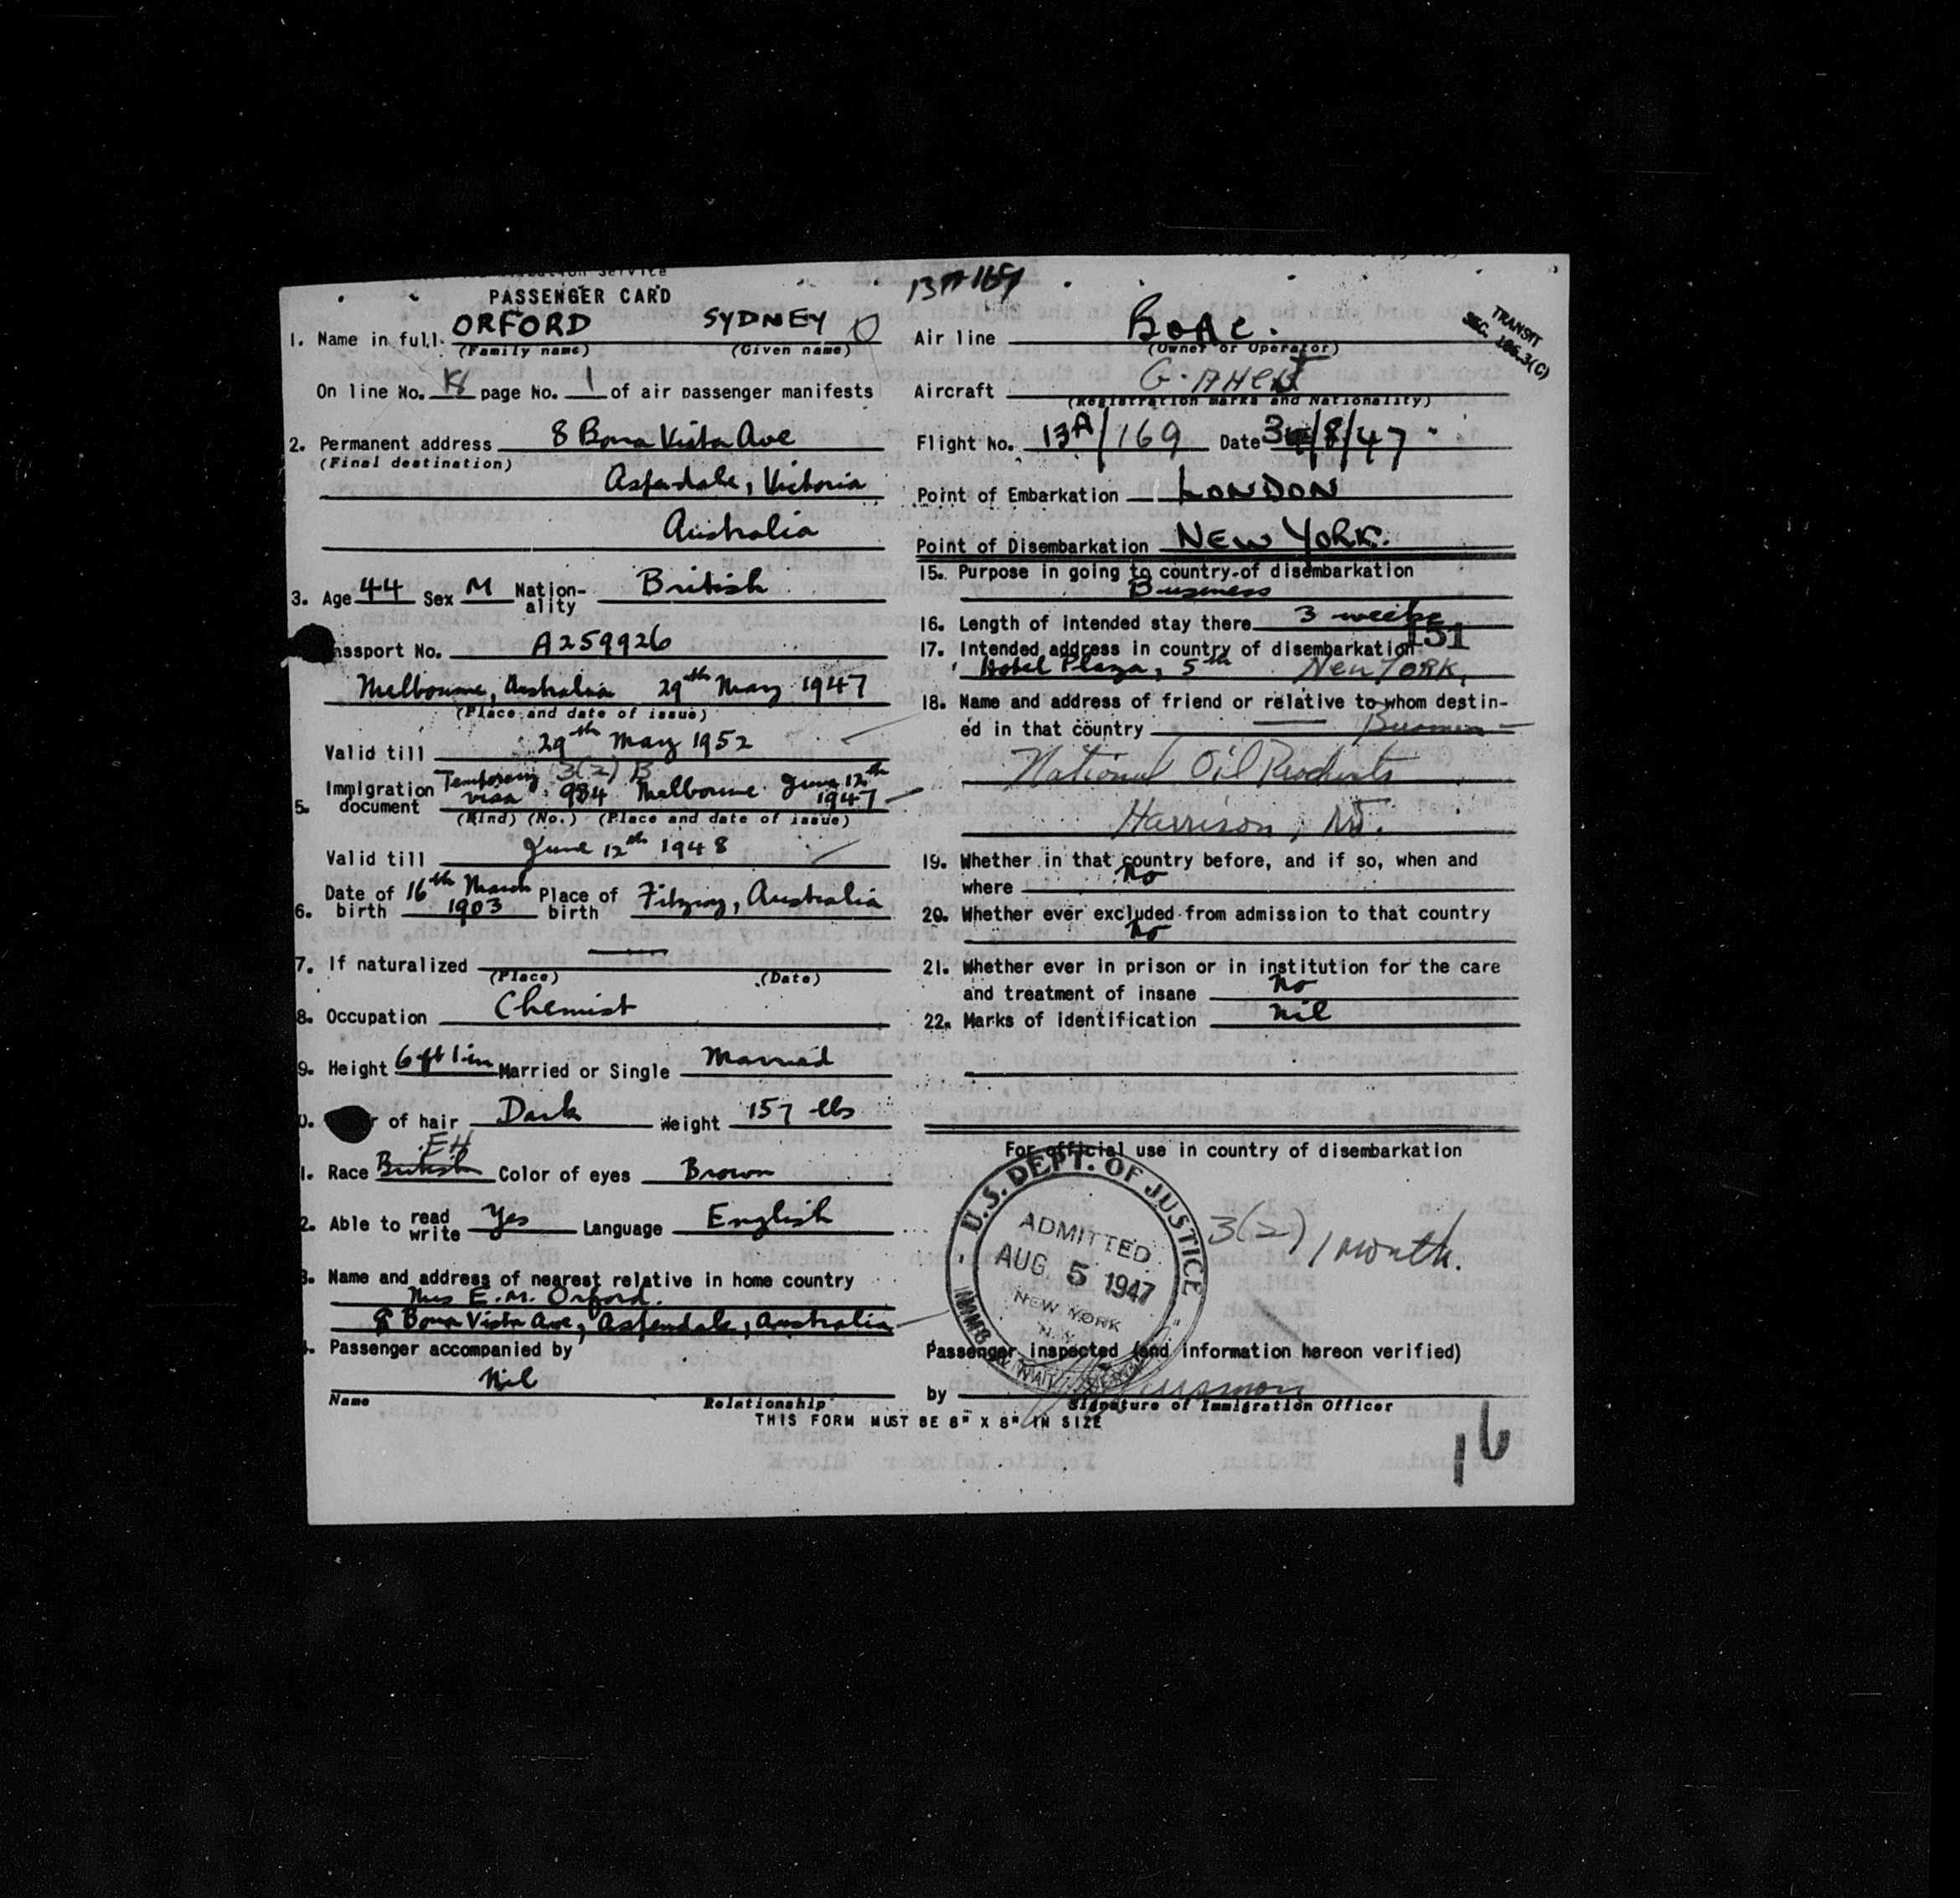 PASSENGER CARD
13A 169
TRANSIT
SEC. (C)
1. Name in full ORFORD SYDNEY
(Family name) (Given name)
On line No. page No. 1 of air passenger manifests
2. Permanent address 8 Bona Vista Ave
(Final destination)
Aspendale, Victoria
Australia
3. Age 44 Sex M Nation-ality British
ssport No. A259926
Melbourne, Australia 29th May 1947
(Place and date of issue)
Valid till 29th May 1952
3(2) B
5. Immigration document Temporary visa 984 Melbourne June 12th 1947
(Kind) (No.) (Place and date of issue)
Valid till June 12th 1948
6. Date of birth 16th March 1903 Place of birth Fitzroy, Australia
7. If naturalized
(Place) (Date)
8. Occupation Chemist
9. Height 6 ft 1 in Married or Single Married
0. r of hair Dark Weight 157 lbs
EH
1. Race British Color of eyes Brown
2. Able to read write Yes Language English
3. Name and address of nearest relative in home country
Mrs E. M. Orford.
8 Bona Vista Ave, Aspendale, Australia
4. Passenger accompanied by
Nil
Name Relationship
Air line BOAC.
(Owner or Operator)
Aircraft
(Registration marks and Nationality)
Flight No. 13A/169 Date /8/47
Point of Embarkation LONDON
Point of Disembarkation NEW YORK.
15. Purpose in going to country of disembarkation
Business
16. Length of intended stay there 3 weeks
151
17. Intended address in country of disembarkation
Hotel Plaza, 5th New York,
18. Name and address of friend or relative to whom destin-
ed in that country Business
National Oil Products
Harrison, NJ.
19. Whether in that country before, and if so, when and
where No
20. Whether ever excluded from admission to that country
No
21. Whether ever in prison or in institution for the care
and treatment of insane No
22. Marks of identification Nil
For official use in country of disembarkation
U.S. DEPT. OF JUSTICE
ADMITTED
AUG 5 1947
NEW YORK
N.Y.
3(2) 1 month.
Passenger inspected (and information hereon verified)
by
Signature of Immigration Officer
THIS FORM MUST BE 8" X 8" IN SIZE
16